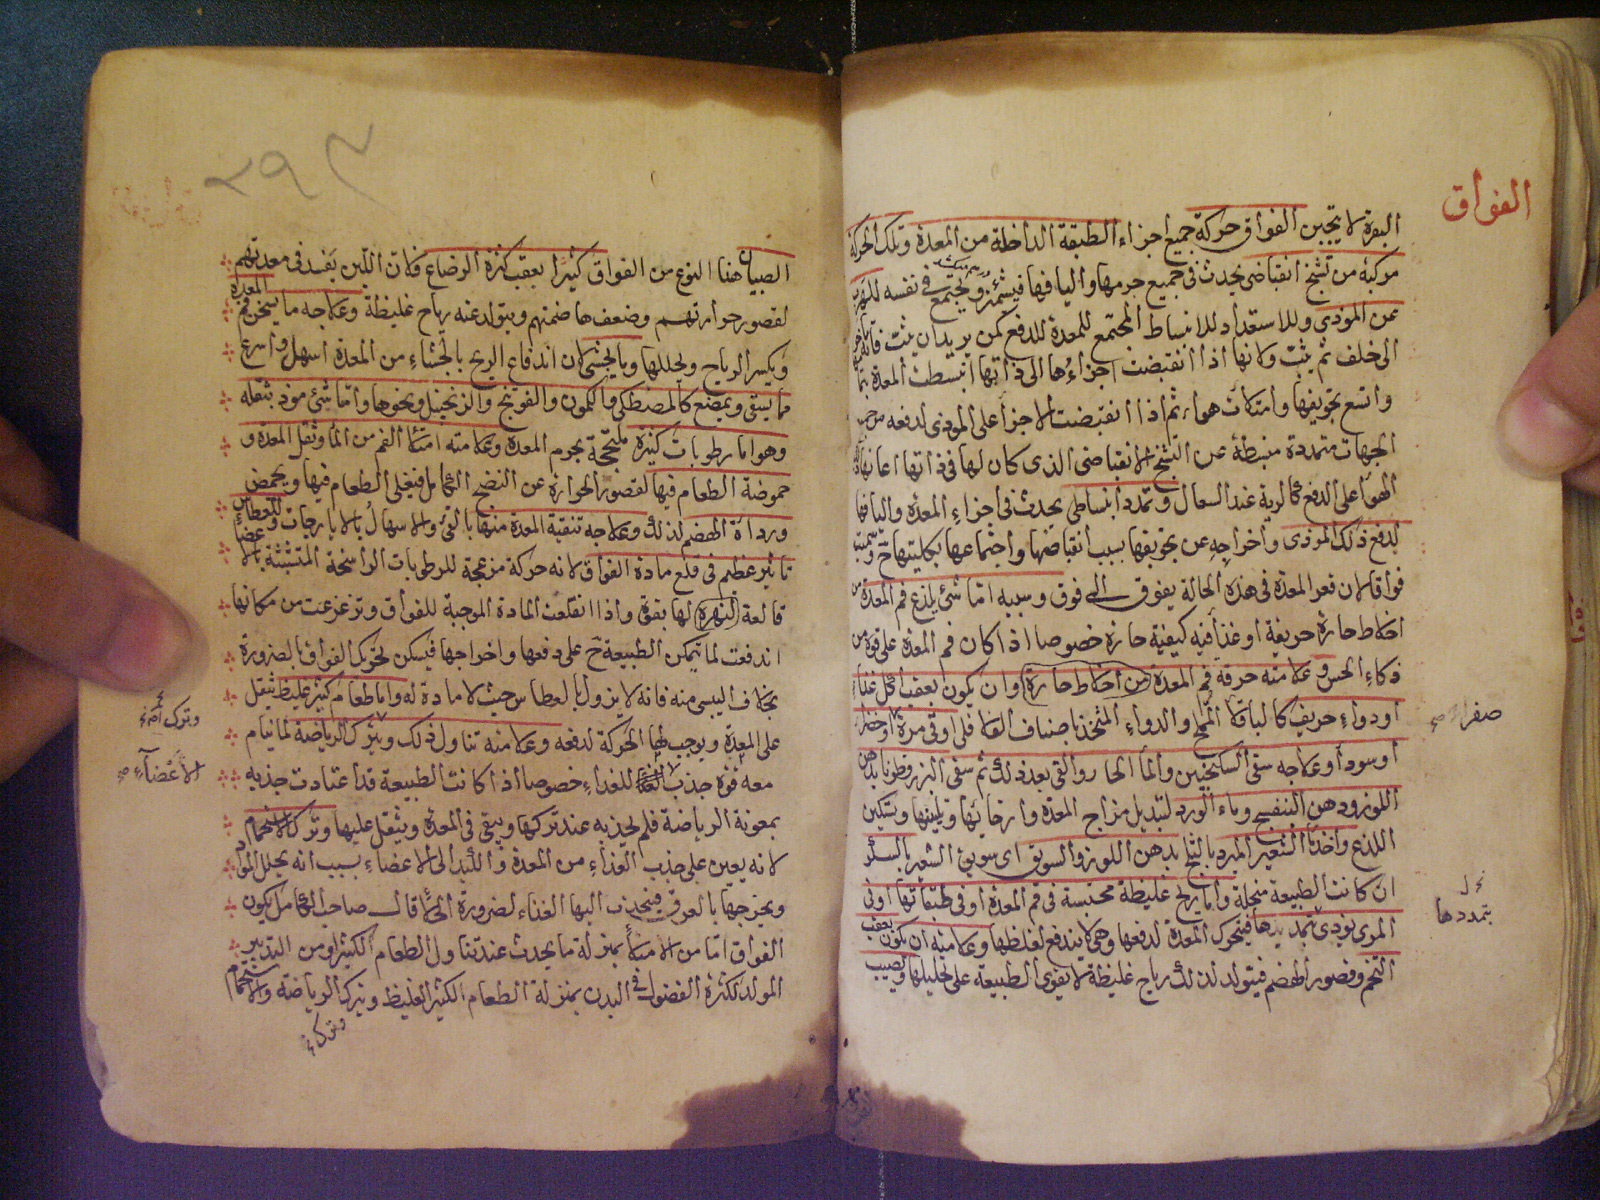 الفواق
البقرة لا يتجبن الفواق حركة جميع اجزاء الطبقة الداخلة من المعدة وتلك الحركة
مركبة من تشنج انقباضى يحدث فى جميع جرمها واليافها فيشمئز ويجتمع فى نفسه للهرب
عن الموذى وللاستعداد للانبساط المجتمع للمعدة للدفع كمن يريد ان يثب فانه
الى خلف ثم يثب ولانها اذا انقبضت اجزاءها الى ذاتها انبسطت المعدة
واتسع تجويفها وامتلات هواء ثم اذا انقبضت الاجزا على الموذى لدفعه من
الجهات متمددة منبسطة عن التشنج الانقباضى الذى كان لها فى ذاتها اعانها
الهوا على الدفع كالرية عند السعال وتمدد انبساطى يحدث فى اجزاء المعدة واليافها
لدفع ذلك الموذى واخراجه عن تجويفها بسبب انقباضها واجتماعها بكليتها ح وسميت
فواقا لان قعر المعدة فى هذه الحالة يفوق الى فوق وسببه اما شئ يلذع فم المعدة من
اخلاط حارة حريفة او غذأ فيه كيفية حارة خصوصا اذا كان فم المعدة على قوة من
ذكاء الحس وعلامته حرقة فم المعدة من اخلاط حارة وان يكون بعقب اكل غذاء
او دواء حريف كالباقلا المملح والدواء المتخذ باصناف الفلافلى او قئ مرة او خضرا
او سودأ وعلاجه سقى السكنجبين والمأ الحار والقئ بعد ذلك ثم سقى البزر قطونا بدهن
اللوز ودهن البنفسج وماء الورد لتبديل مزاج المعدة وارخائها وتليينها وتسكين
اللذع واخذ ماء الشعير المبرد بالثلج بدهن اللوز والسويق اى سويق الشعير بالسكر
ان كانت الطبيعة منحلة واما ريح غليظة محتبسة فى فم المعدة او فى طبقاتها او فى
المرى يوذى بتمديدها فيتحرك المعدة لدفعها وهى لا يندفع لغلظها وعلامته ان يكون بعقب
التخم وقصور الهضم فيتولد لذلك رياح غليظة لا يقوى الطبيعة على تحليلها ويصيب
صفرا صح
بتمددها
٢٩٩
الصبيان هذا النوع من الفواق كثيرا بعقب كثرة الرضاع فلان اللبن يفسد فى معدتهم
لقصور حرارتهم وضعف هاضمتهم ويتولد عنه رياح غليظة وعلاجه ما يسخن فم المعدة
ويكسر الرياح ويحللها وبالجشى لان اندفاع الريح بالجشاء من المعدة اسهل واسرع
مما يسقى ويمضغ كالمصطكى والكمون والفوتنج والزنجبيل ونحوها واما شئ موذ بثقله
وهو اما رطوبات كثيرة ملتحجة بجرم المعدة وعلامته امتلأ الفم من المأ وثقل المعدة و
حموضة الطعام فيها لقصور الحرارة عن النضج الكامل فيغلى الطعام فيها ويحمض
ورداة الهضم لذلك وعلاجه تنقية المعدة منها بالقئ والاسهال بالايارجات وللعطاس
تاثير عظيم فى قلع مادة الفواق لانه حركة مزعجة للرطوبات الراسخة المتشبثة بالاعضاء
قالعة لها بقوة واذا انقلعت المادة الموجبة للفواق وتزعزعت من مكانها
اندفعت لما يتمكن الطبيعة ح على دفعها واخراجها فيسكن تحرك الفواق بالضرورة
بخلاف اليبسى منه فانه لا يزول بالعطاس حيث لا مادة له واما طعام كثير غليظ يثقل
على المعدة ويوجب لها الحركة لدفعه وعلامته تناول ذلك وبترك الرياضة لما نيام
معه قوة جذب للغداء خصوصا اذا كانت الطبيعة قد اعتادت جذبه
بمعونة الرياضة فلم يجذبه عند تركها ويبقى فى المعدة ويثقل عليها وترك الاستحمام
لانه يعين على جذب الغذاء من المعدة والكبد الى الاعضاء بسبب انه يحلل المواد
ويخرجها بالعرق فينجذب اليها الغذاء لضرورة الخلأ قال صاحب الكامل يكون
الفواق اما من الامتلأ بمنزلة ما يحدث عند تناول الطعام الكثير ومن التدبير
المولد لكثرة الفضول فى البدن بمنزلة الطعام الكثير الغليظ وبترك الرياضة والاستحمام
الاعضاء صح
وترك